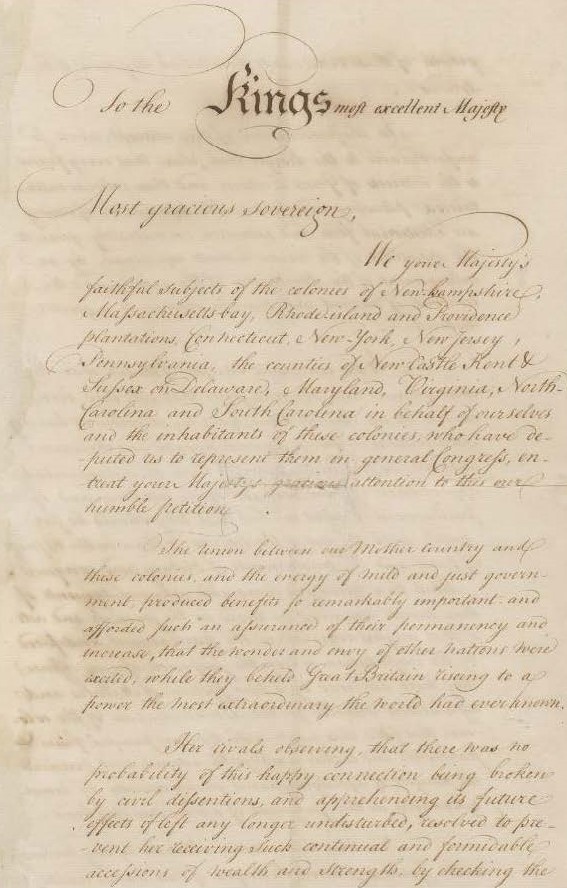 To the Kings most excellent Majesty
Most gracious sovereign,
We your Majesty's
faithful subjects of the colonies of New-hampshire,
Massachusetts-bay, Rhode-island and Providence
plantations, Connecticut, New-York, New Jersey,
Pennsylvania, the counties of New Castle Kent &
Sussex on Delaware, Maryland, Virginia, North-
Carolina and South Carolina in behalf of ourselves
and the inhabitants of these colonies, who have de-
-puted us to represent them in general Congress, en-
treat your Majesty's gracious attention to this our
humble petition.
The Union between our Mother Country and
these colonies, and the energy of mild and just govern-
ment, produced benefits so remarkably important, and
afforded such an assurance of their permanency and
increase, that the wonder and envy of other Nations were
excited, while they beheld Great Britain rising to a
power the most extraordinary the world had ever known.
Her rivals observing, that there was no
probability of this happy connection being broken
by civil dissentions, and apprehending its future
effects if left any longer undisturbed, resolved to pre-
-vent her receiving such continual and formidable
accessions of wealth and strength, by checking the